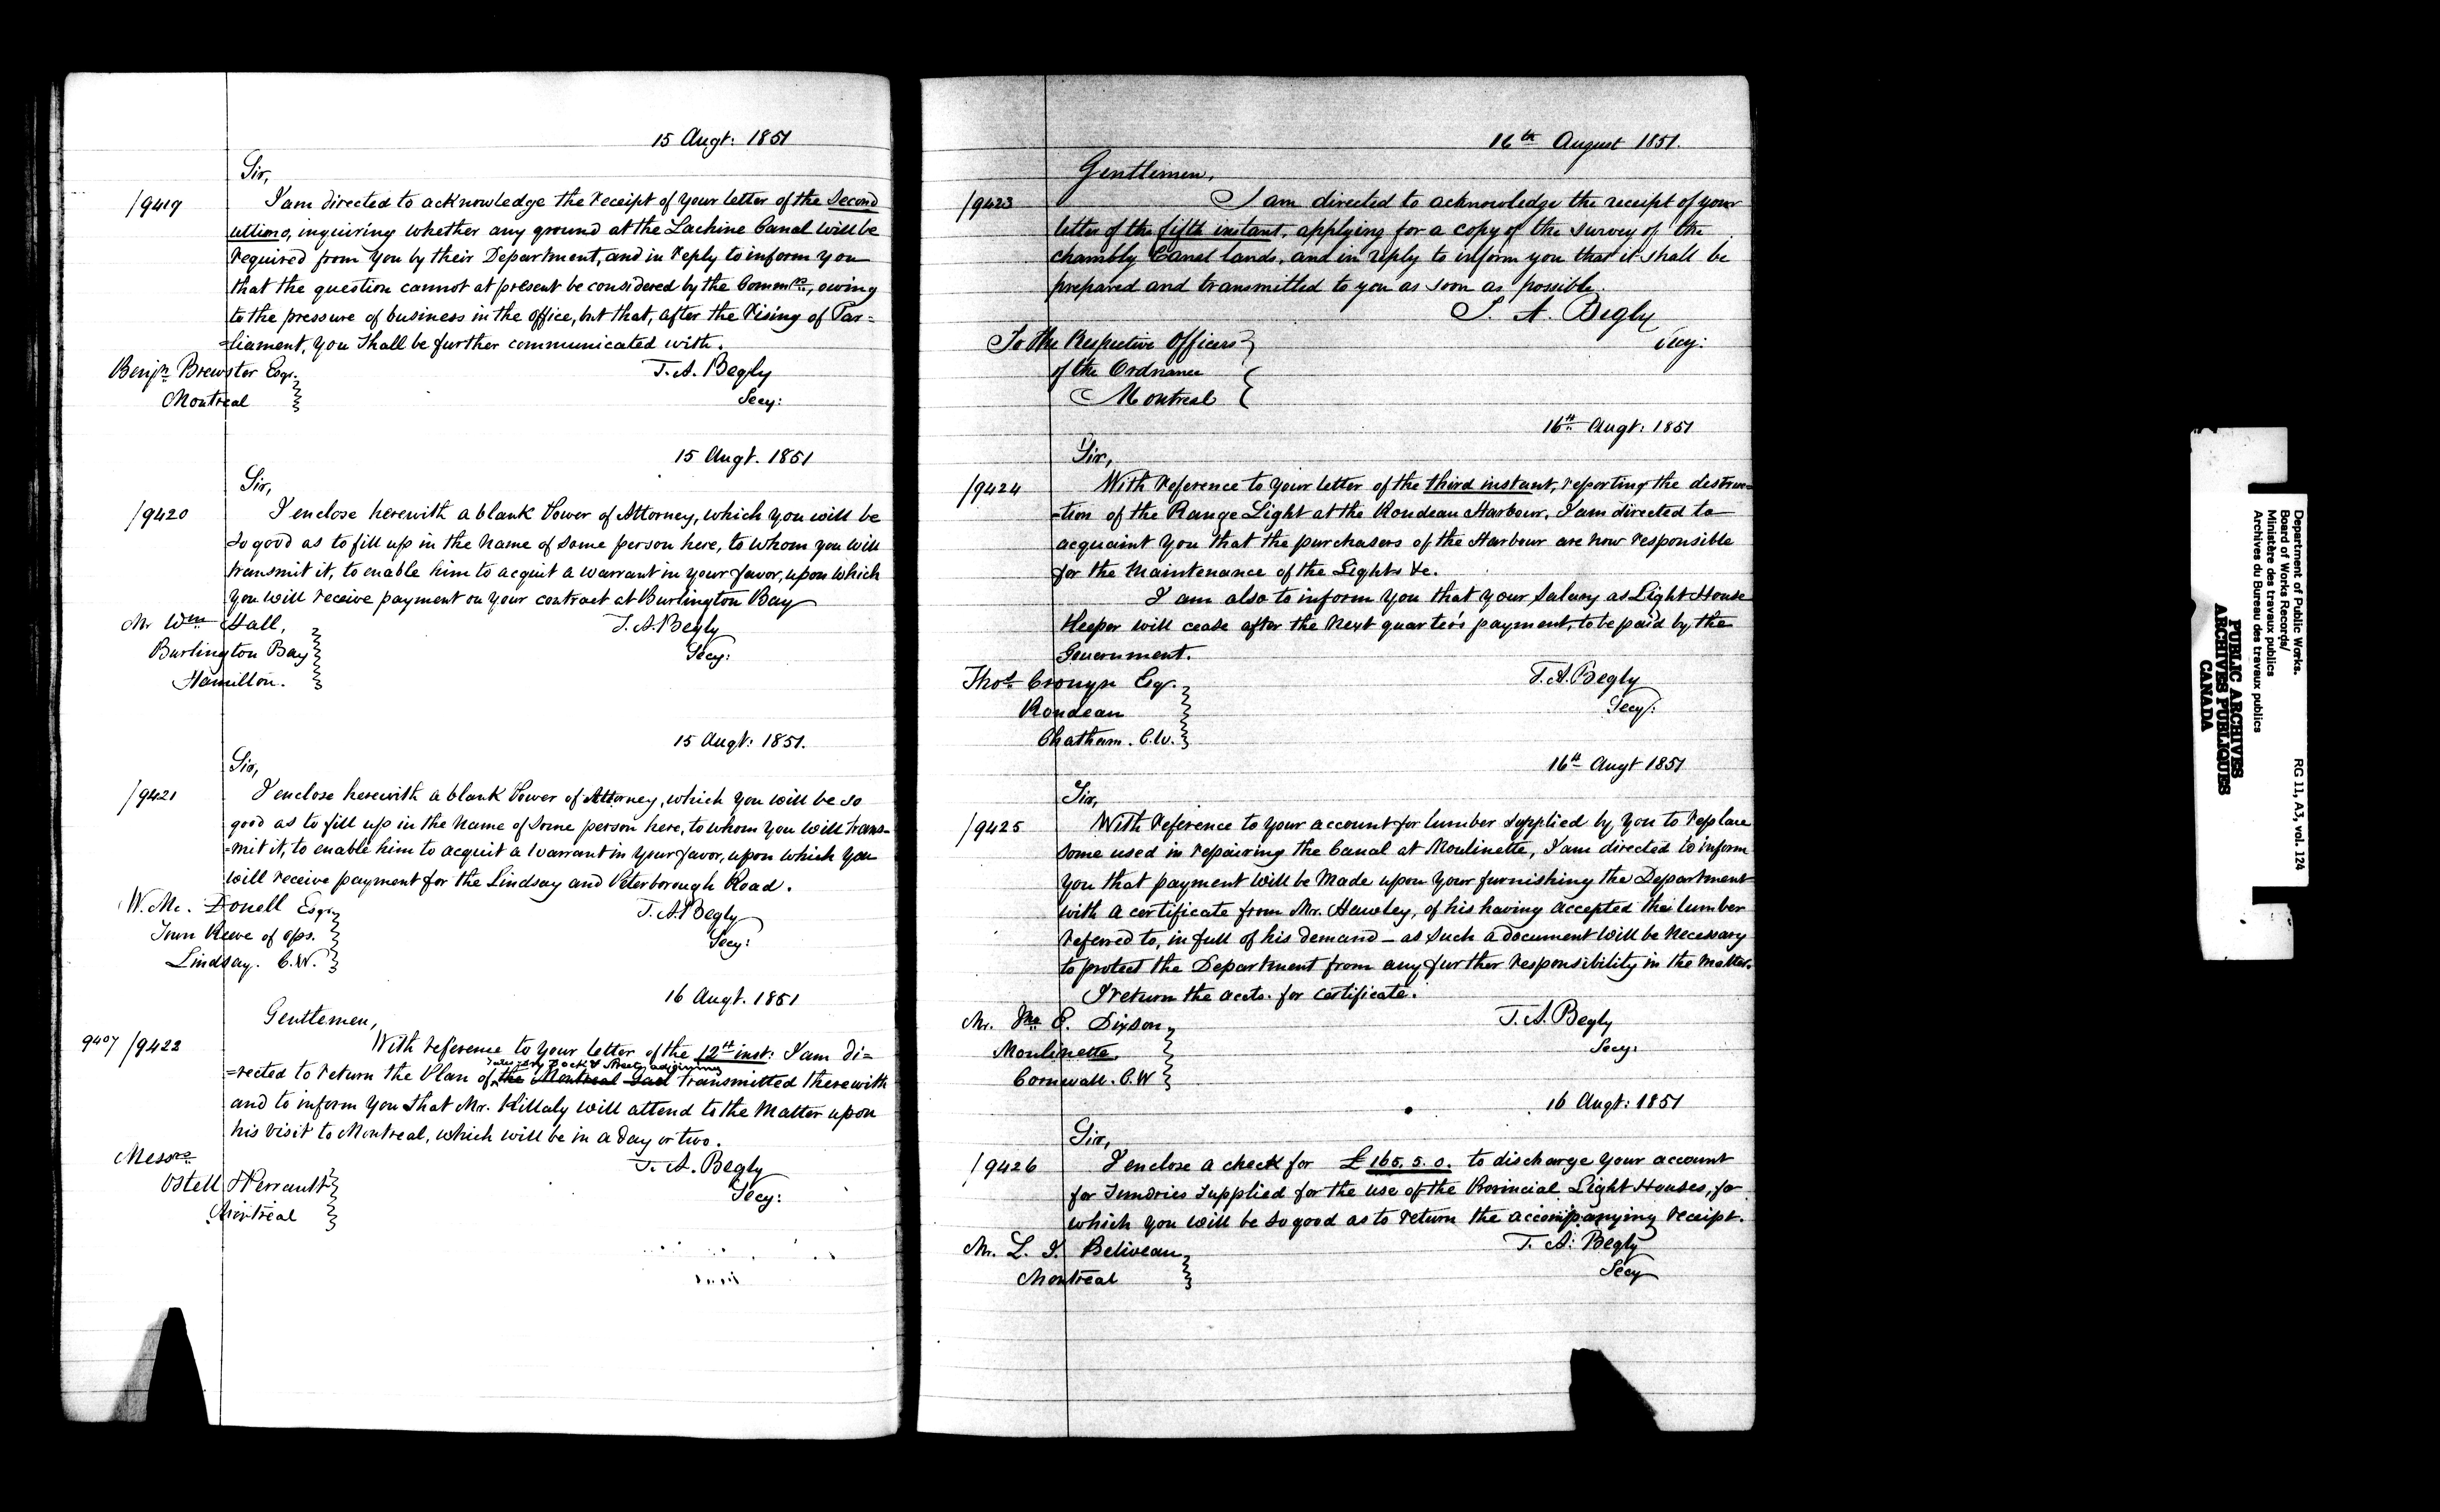 15 Augt: 1851
Sir,
/9419
I am directed to acknowledge the receipt of your letter of the second
ultimo, inquiring whether any ground at the Lachine Canal will be
required from you by their Department, and in reply to inform you
that the question cannot at present be considered by the Commrs, owing
to the pressure of business in the office, but that, after the rising of Par=
=liament, you shall be further communicated with.
Benjn Brewster Esqr.
Montreal
T. A. Begly
Secy:
15 Augt. 1851
Sir,
/9420
I enclose herewith a blank Power of Attorney, which you will be
so good as to fill up in the name of some person here, to whom you will
transmit it, to enable him to acquit a warrant in your favor, upon which
you will receive payment on your contract at Burlington Bay
Mr Wm Hall,
Burlington Bay
Hamilton.
T. A. Begly
Secy:
15 Augt: 1851.
Sir,
/9421
I enclose herewith a blank Power of Attorney, which you will be so
good as to fill up in the name of some person here, to whom you will trans-
-mit it, to enable him to acquit a warrant in your favor, upon which you
will receive payment for the Lindsay and Peterborough Road.
W. Mc. Donell Esqr.
Town Reeve of Ops.
Lindsay. C.W.
T. A. Begly
Secy:
16 Augt. 1851
Gentlemen,
9407 /9422
With reference to your letter of the 12th inst: I am di=
=rected to return the Plan of the Montreal transmitted therewith
and to inform you that Mr. Killaly will attend to the matter upon
his visit to Montreal, which will be in a day or two.
Messrs
Ostell & Perrault
Montreal
T. A. Begly
Secy:
16th August 1851.
Gentlemen,
/9423
I am directed to acknowledge the receipt of your
letter of the fifth instant, applying for a copy of the survey of the
chambly Canal lands, and in reply to inform you that it shall be
prepared and transmitted to you as soon as possible.
T. A. Begly
Secy:
To the Respective Officers
of the Ordnance
Montreal
16th Augt: 1851
Sir,
/9424
With reference to your letter of the third instant, reporting the destruc=
-tion of the Range Light at the Rondeau Harbour, I am directed to
acquaint you that the purchasers of the Harbour are now responsible
for the maintenance of the Lights &c.
I am also to inform you that your salary as Light House
Keeper will cease after the next quarter's payment, to be paid by the
Government.
Thos Cronyn Esqr.
Rondeau
Chatham. C.W.
T. A. Begly
Secy:
16th Augt 1851
Sir,
/9425
With reference to your account for lumber supplied by you to replace
some used in repairing the Canal at Moulinette, I am directed to inform
you that payment will be made upon your furnishing the Department
with a certificate from Mr. Hawley, of his having accepted the lumber
referred to, in full of his demand - as such a document will be necessary
to protect the Department from any further responsibility in the matter.
I return the accts. for certificate.
Mr. E. Dixson
Moulinette
Cornwall. C.W
T. A. Begly
Secy:
16 Augt: 1851
Sir,
/9426
I enclose a check for £165. 5. 0. to discharge your account
for sundries supplied for the use of the Provincial Light Houses, for
which you will be so good as to return the accompanying receipt.
Mr. L. J. Beliveau
Montreal
T. A. Begly
Secy
Department of Public Works.
Board of Works Records/
Ministère des travaux publics
Archives du Bureau des travaux publics
RG 11, A3, vol. 124
PUBLIC ARCHIVES
ARCHIVES PUBLIQUES
CANADA